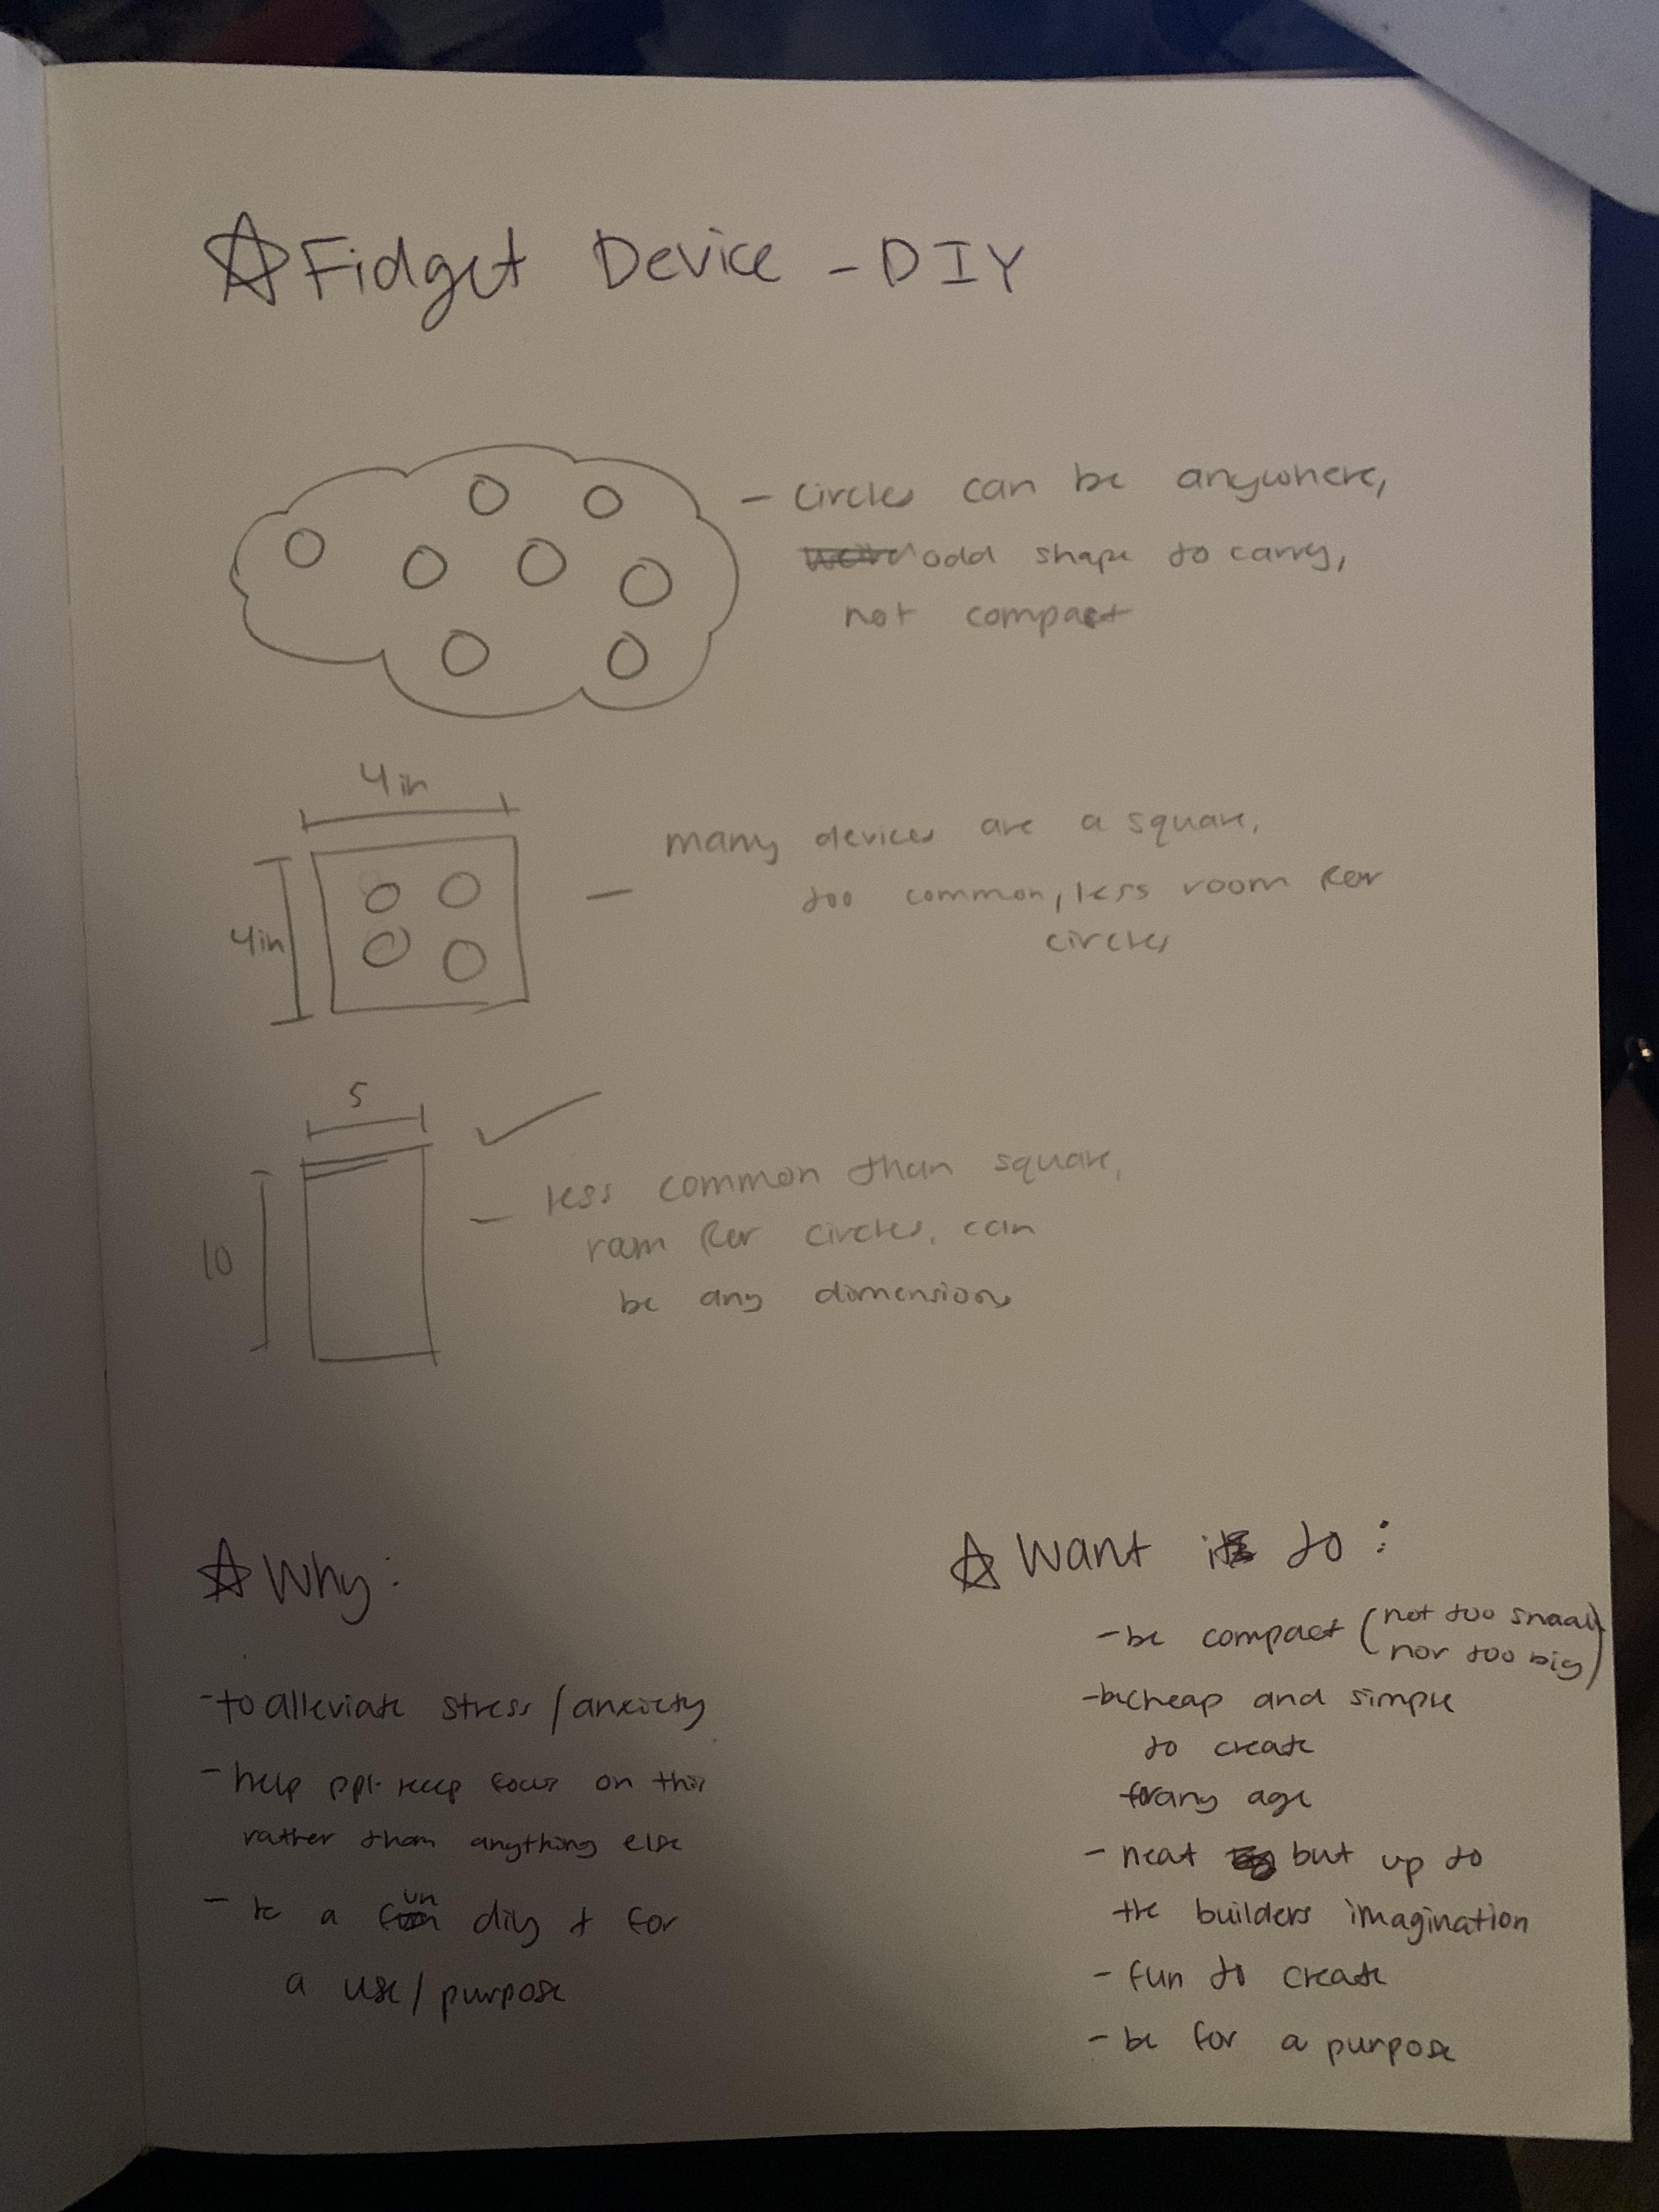 ☆ Fidget Device - DIY
- circles can be anywhere,
odd shape to carry,
not compact
4in
4in
- many devices are a square,
too common, less room for
circles
5
10
- less common than square,
room for circles, can
be any dimensions
☆ Why:
- to alleviate stress/anxiety
- help ppl. keep focus on this
rather than anything else
- be a fun diy + for
a use/purpose
☆ Want it to:
- be compact (not too small
nor too big)
- be cheap and simple
to create
for any age
- neat but up to
the builders imagination
- fun to create
- be for a purpose